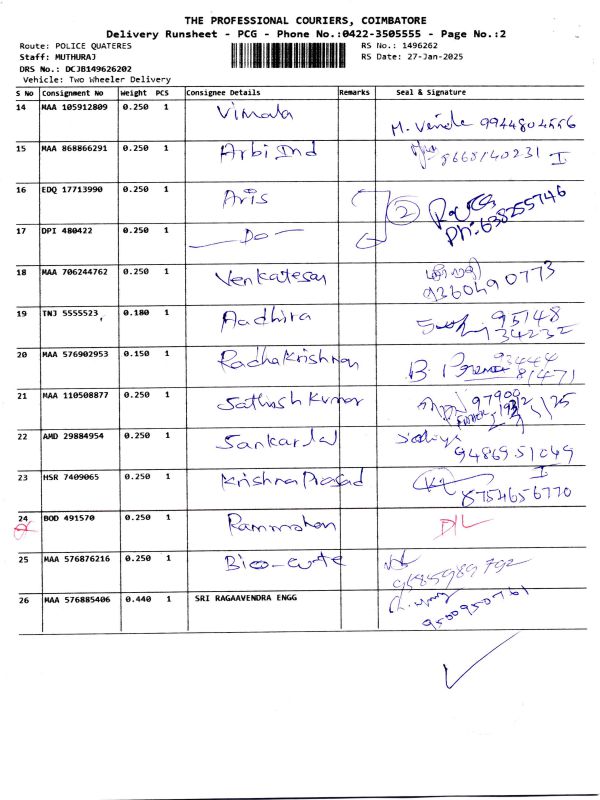 THE PROFESSIONAL COURIERS, COIMBATORE
Delivery Runsheet - PCG - Phone No.:0422-3505555 - Page No.:2
Route: POLICE QUATERES RS No.: 1496262
Staff: MUTHURAJ RS Date: 27-Jan-2025
DRS No.: DCJB149626202
Vehicle: Two Wheeler Delivery
S No Consignment No Weight PCS Consignee Details Remarks Seal & Signature
14 MAA 105912809 0.250 1 Vimala 9944804556
15 MAA 868866291 0.250 1 Arbi Ind 8668140231 I
16 EDQ 17713990 0.250 1 Aris 2
17 DPI 480422 0.250 1 — Do — Ph: 638255746
18 MAA 706244762 0.250 1 Venkatesan 9360490773
19 TNJ 5555523 0.180 1 Aadhira 95148
34232
20 MAA 576902953 0.150 1 Radhakrishnan B. 93444
81471
21 MAA 110508877 0.250 1 Sathish Kumar 97909
22 AMD 29884954 0.250 1 Sankarlal 9486951049
23 HSR 7409065 0.250 1 Krishna Prasad I
8754656770
24 BOD 491570 0.250 1 Rammohan D/L
25 MAA 576876216 0.250 1 Bio-cute 9585989792
26 MAA 576885406 0.440 1 SRI RAGAAVENDRA ENGG 9500950761